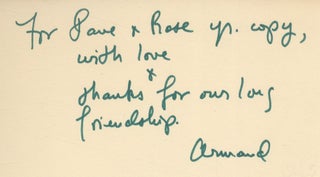 For Dave & Rose yr. copy,
with love
&
thanks for our long
friendship.
Armand